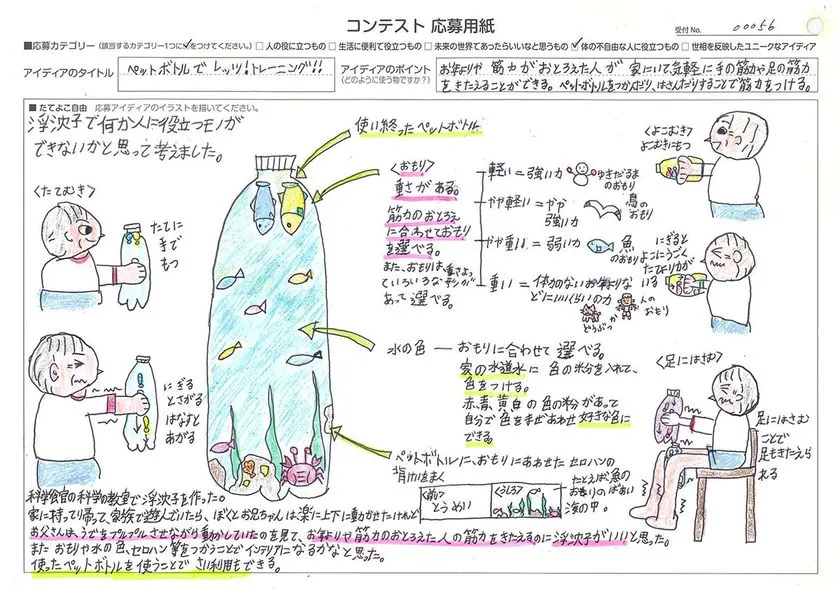 コンテスト 応募用紙
受付No. 00056
■応募カテゴリー (該当するカテゴリー1つに✓をつけてください。) □人の役に立つもの □生活に便利で役立つもの □未来の世界であったらいいなと思うもの ☑体の不自由な人に役立つもの □世相を反映したユニークなアイディア
アイディアのタイトル
ペットボトルで レッツ!トレーニング!!
アイディアのポイント
(どのように使う物ですか?)
お年よりや 筋力がおとろえた人が 家にいて気軽に手の筋力や足の筋力
をきたえることができる。ペットボトルをつかんだり、はさんだりすることで筋力をつける。
■たてよこ自由 応募アイディアのイラストを描いてください。
浮沈子で何か人に役立つモノが
できないかと思って考えました。
使い終ったペットボトル
<たてむき>
たてに
もつ
<おもり>
重さがある。
筋力のおとろえ
に合わせておもり
を選べる。
また、おもりは、重さによっ
ていろいろな形が
あって選べる。
軽い=強い力
ゆきだるま
のおもり
やや軽い=やや
強い力
鳥の
おもり
やや重い=弱い力
魚
のおもり
重い=体力のないお年よりな
どにいいくらいの力
どうぶつ
か
人の
おもり
<よこむき>
よこむきにもつ
にぎると
よこにうごく
たてより力が
いる
にぎる
とさがる
はなすと
あがる
水の色 ― おもりに合わせて 選べる。
家の水道水に 色の粉を入れて、
色をつける。
赤、青、黄、白の色の粉があって
自分で色をまぜあわせ 好きな色に
できる。
<足にはさむ>
足にはさむ
ことで
足もきたえら
れる
ペットボトルに、おもりにあわせた セロハンの
背けいをまく
<前>
とうめい
<うしろ>
たとえば魚の
おもりのばあい
海の中。
科学館の科学の教室で浮沈子を作った。
家に持って帰って、家族で遊んでいたら、ぼくとお兄ちゃんは、楽に上下に動かせたけれど
お父さんは、うでをプルプルさせながら動かしていたのを見て、お年よりや筋力のおとろえた人の筋力をきたえるのに浮沈子がいいと思った。
また おもりや水の色、セロハン等をつかうことで インテリアになるかなと思った。
使ったペットボトルを使うことで さい利用もできる。